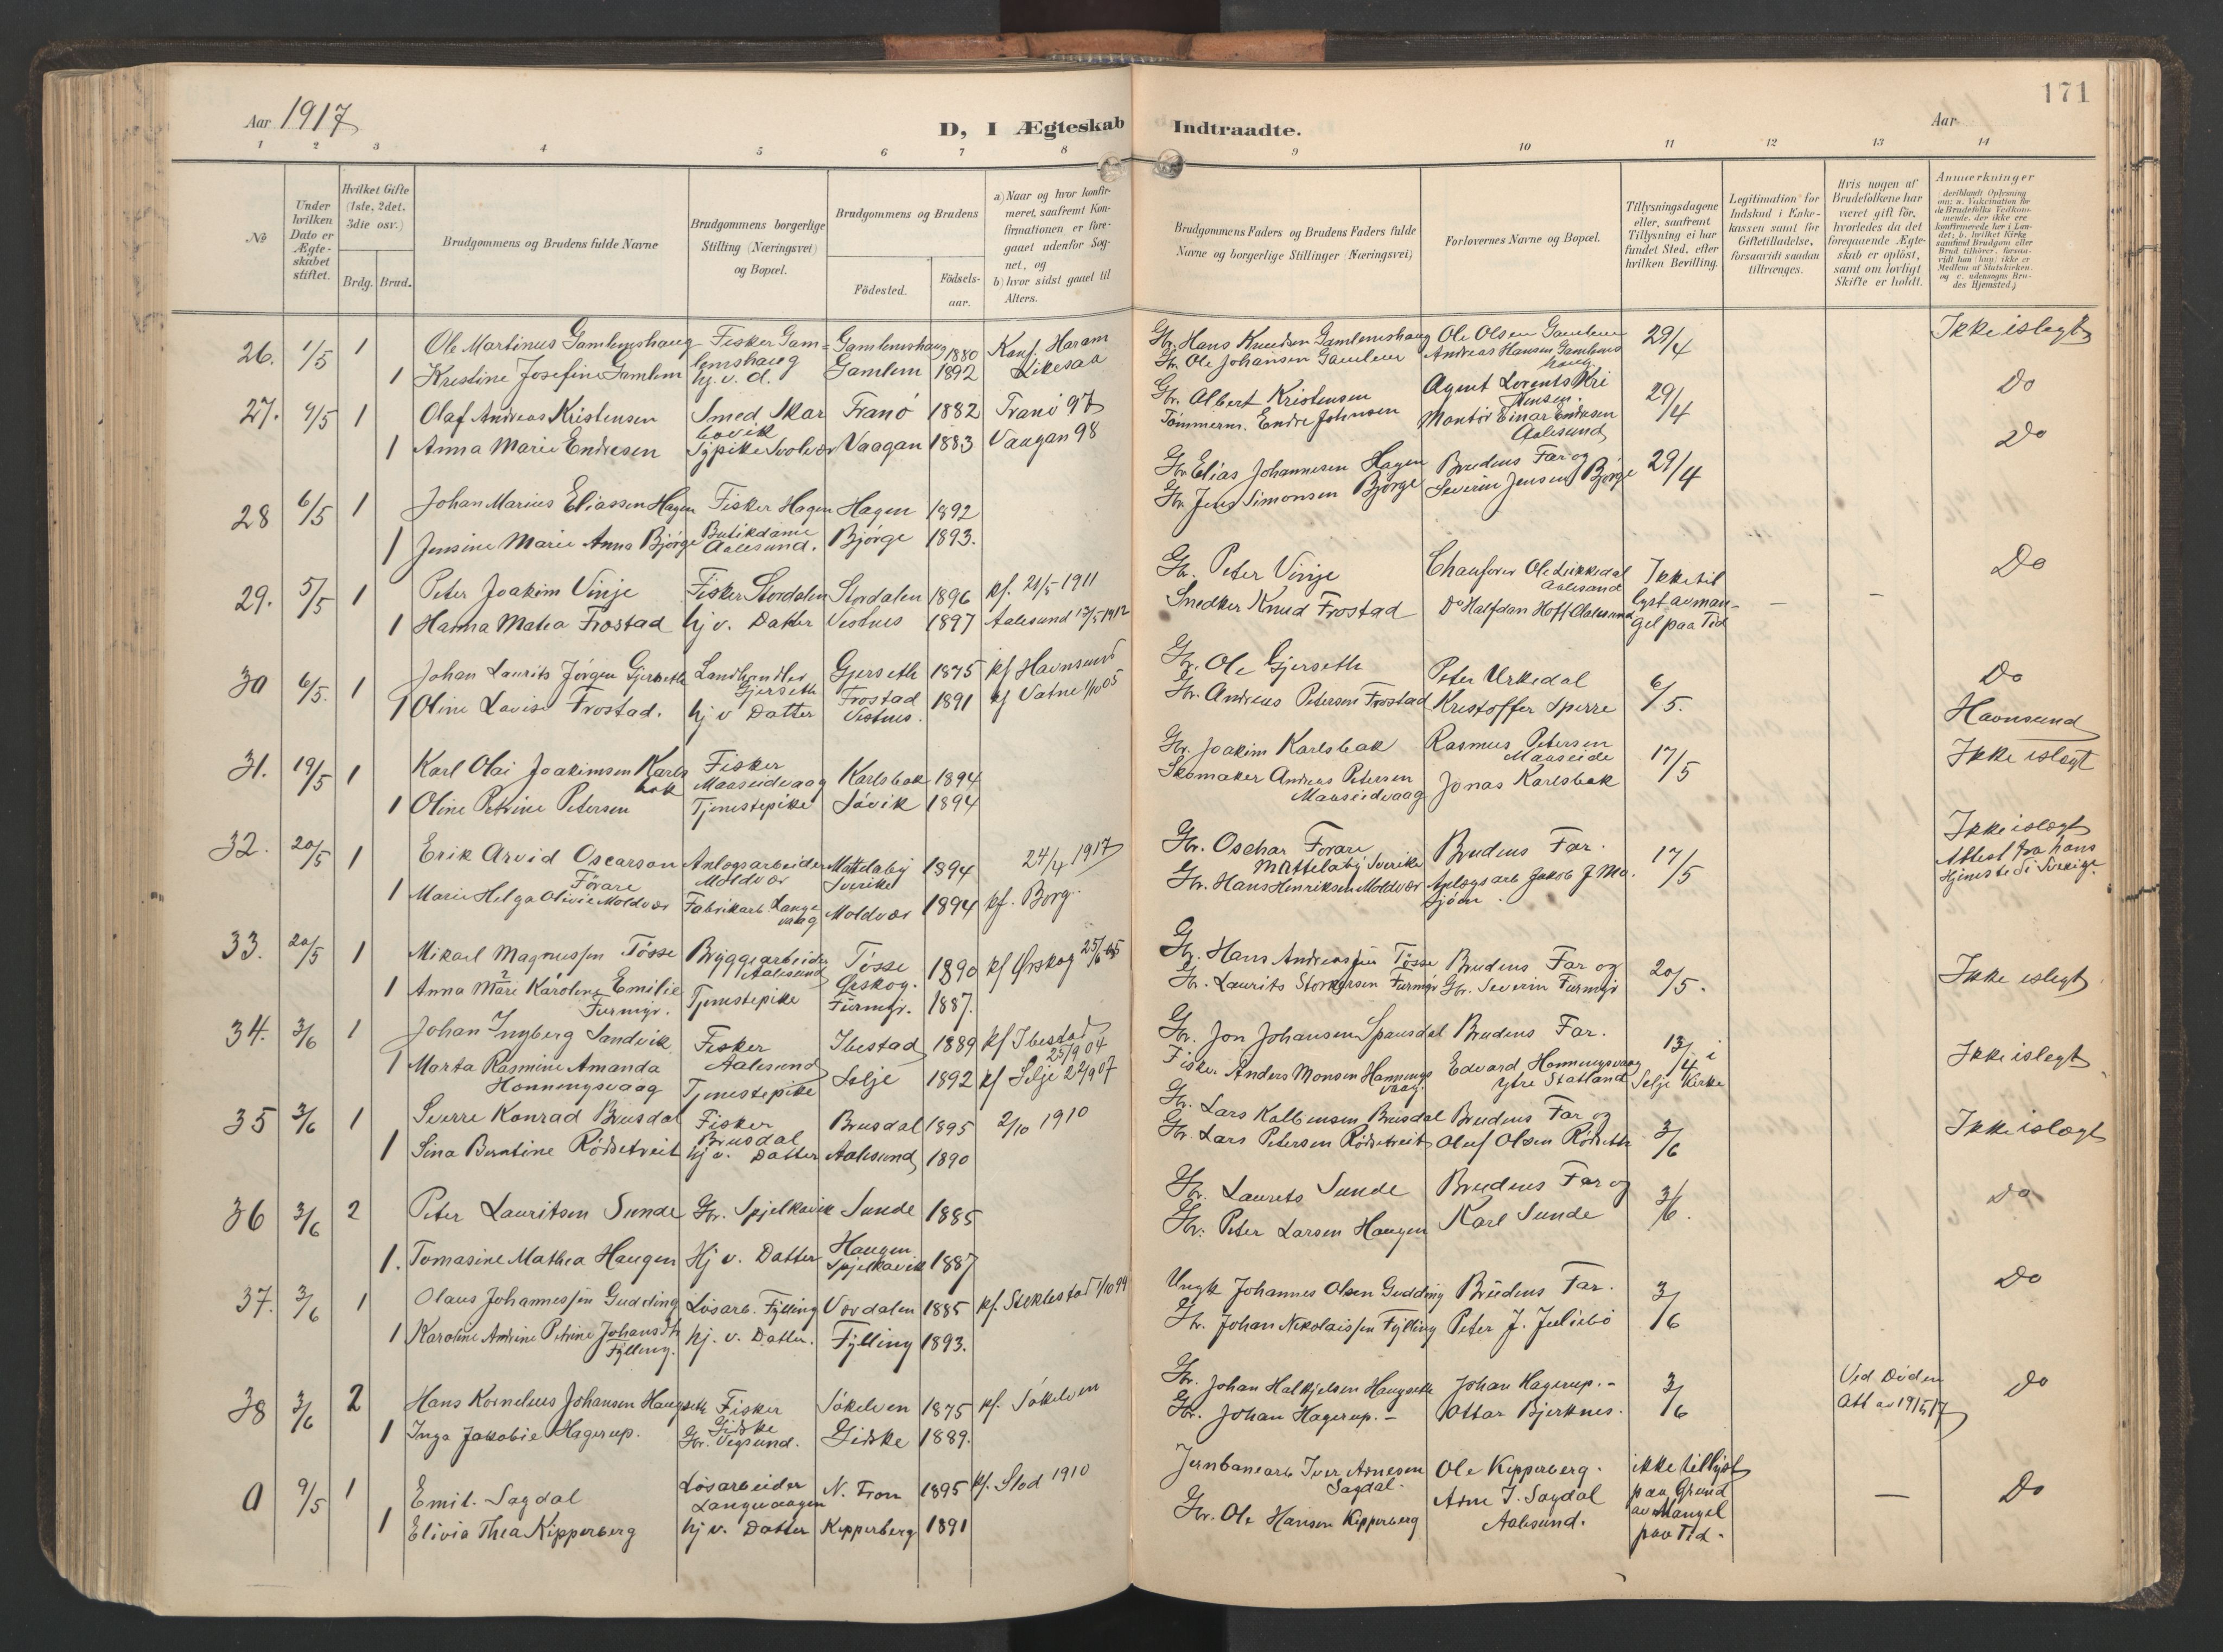 171
Aar 1917
D, I Ægteskab Indtraadte.
Aar
1 2 3 4 5 6 7 8 9 10 11 12 13 14
No
Under hvilken Dato er Ægteskabet stiftet.
Hvilket Gifte (1ste, 2det, 3die osv.)
Brdg. Brud.
Brudgommens og Brudens fulde Navne
Brudgommens borgerlige Stilling (Næringsvei) og Bopæl.
Brudgommens og Brudens
Födested.
Födselsaar.
a) Naar og hvor konfirmeret, saafremt Konfirmationen er foregaaet udenfor Sognet, og
b) hvor sidst gaaet til Alters.
Brudgommens Faders og Brudens Faders fulde Navne og borgerlige Stillinger (Næringsvei)
Forlovernes Navne og Bopæl.
Tillysningsdagene eller, saafremt Tillysning ei har fundet Sted, efter hvilken Bevilling.
Legitimation for Indskud i Enkekassen samt for Giftetilladelse, forsaavidt saadan tiltrænges.
Hvis nogen af Brudefolkene har været gift för, hvorledes da det foregaaende Ægteskab er oplöst, samt om lovligt Skifte er holdt.
Anmerkninger (deriblandt Oplysning om: a. Vakcination for de Brudefolks Vedkommende, der ikke ere konfirmerede her i Landet; b. hvilket Kirkesamfund Brudgom eller Brud tilhörer, forsaavidt han (hun) ikke er Medlem af Statskirken, og c. udensogns Brudes Hjemsted.)
26. 1/5 1 Ole Martinus Gamlemshaug Fisker Gamlemshaug Gamlemshaug 1880 Konf. Haram Gbr. Hans Knudsen Gamlemshaug Ole Olsen Gamlem 29/4 Ikke i slegt
1 Kristine Josefine Gamlem hj. v. d. Gamlem 1892 Likesaa Gbr. Ole Johansen Gamlem Andreas Hansen Gamlemshaug
27. 4/5 1 Olaf Andreas Kristensen Smed Skarbövik Tranö 1882 Tranö 97 Gbr. Albert Kristensen Agent Lorents Kristensen. 29/4 Do
1 Anna Marie Endresen Sypike Svolvær Vaagan 1883 Vaagan 98 Tömmerm. Endre Johnsen Montör Einar Endresen Aalesund
28 6/5 1 Johan Marius Eliassen Hagen Fisker Hagen Hagen 1892 Gbr. Elias Johannesen Hagen Brudens Far og 29/4 Do
1 Jensine Marie Anna Bjørge Butikdame Aalesund. Bjørge 1893. Gbr. Jens Simonsen Bjørge Severin Jensen Bjørge
29. 5/5 1 Peter Joakim Vinje Fisker Stordalen Stordalen 1896 kf. 21/5 1911 Gbr. Peter Vinje Chauförer Ole Likkedal Aalesund Ikke tillyst av mangel paa Tid – – Do
1 Hanna Matea Frostad hj v. Datter Vestnes 1897 Aalesund 12/5 1912 Snedker Knud Frostad Do Halfdan Hoff Aalesund
30 6/5. 1 Johan Laurits Jörgen Gjerseth Landhandler Gjerseth Gjerseth 1875 kf Havnsund Gbr. Ole Gjerseth Peter Urkedal 6/5. Do
1 Oline Lovise Frostad. hj v Datter Frostad Vestnes. 1891 kf Vatne 1/10 05 Gbr. Andreas Petersen Frostad Kristoffer Sperre Havnsund
31. 19/5 1 Karl Olai Joakimsen Karlsbak Fisker Maaseidvaag Karlsbak 1894 Gbr. Joakim Karlsbak Rasmus Petersen Maaseide 17/5 Ikke i slegt
1 Oline Petrine Petersen Tjenestepike Sövik 1894 Skomaker Andreas Petersen Maaseidvaag Jonas Karlsbak
32. 20/5 1 Erik Arvid Oscarson Förare Anlægsarbeider Moldvær Mattelabÿ Sverike 1894 24/4 1917 Gbr. Oschar Forare Mattelabÿ Sverike Brudens Far. 17/5 Ikke i slegt
1 Marie Helga Olivie Moldvær Fabrikarb. Langevaag Moldvær 1894 kf. Borg. Gbr. Hans Henriksen Moldvær Anlægsarb Jakob J. Mo. Attest fra hans Hjemsted i Sverige.
33. 20/5 1 Mikael Magnus Tösse Bryggearbeider Aalesund Tösse Ørskog. 1890 kf Ørskog 25/6 05 Gbr. Hans Andreassen Tösse Brudens Far og 20/5. Ikke i slegt
1 Anna Mari Karoline Emilie Furmyr. Tjenestepike Furmyr. 1887. Gbr. Laurits Storkersen Furmyr Gbr. Severin Furmyr
34. 3/6 1 Johan Ingberg Sandvik Fisker Aalesund Ibestad 1889 kf Ibestad 25/9 04 Gbr. Jon Johansen Spansdal Brudens Far. 13/4 i Selje Kirke Ikke i slegt
1 Marta Rasmine Amanda Honningsvaag Tjenestepike Selje 1892 kf Selje 22/9 07 Fisker Anders Monsen Honningsvaag. Edvard Honningsvaag Ytre Statland
35 3/6 1 Sverre Konrad Brusdal Fisker Brusdal Brusdal 1895 2/10 1910 Gbr. Lars Kolbensen Brusdal Brudens Far og 3/6 Ikke i slegt
1 Sina Berntine Rödsetreit hj v. Datter Aalesund 1890 Gbr. Lars Petersen Rödsetreit Oluf Olsen Rödseth
36 3/6 2 Peter Lauritsen Sunde Gbr. Spjelkavik Sunde 1885 Gbr. Laurits Sunde Brudens Far og 3/6. Do
1. Tomasine Mathea Haugen Hj v. Datter Haugen Spjelkavik 1887 Gbr. Peter Larsen Haugen Karl Sunde
37. 3/6 1 Olaus Johannessen Gudding Lösarb. Fylling Værdalen 1885 kf. Stiklestad 1/10 99 Ungk Johannes Olsen Gudding Brudens Far. 3/6 Do
1 Karoline Andrine Petrine Johansdtr Fylling. hj. v. Datter. Fylling 1893. Gbr. Johan Nikolaissen Fylling Peter J. Juliebö
38 3/6 2 Hans Kornelius Johansen Haugseth Fisker Giske Sökelven 1875 kf. Sökelven Gbr. Johan Halkjelsen Haugseth Johan Hagerup. – 3/6 Ved Døden Att av 19/5 17 Do
1 Inga Jakobie Hagerup. Gbr. Vegsund. Giske 1889. Gbr. Johan Hagerup. – Ottar Bjerknes.
a 9/5 1 Emil. Sagdal Lösarbeider Langevaagen N. Fron 1895 kf. Stod 1910 Jernbanearb Iver Arnesen Sagdal. Ole Kipperberg. ikke tillyst paa Grund av Mangel paa Tid. – Do
1 Elivia Thea Kipperberg hj v. Datter Kipperberg 1891 Gbr. Ole Hansen Kipperberg Arne I. Sagdal Aalesund.